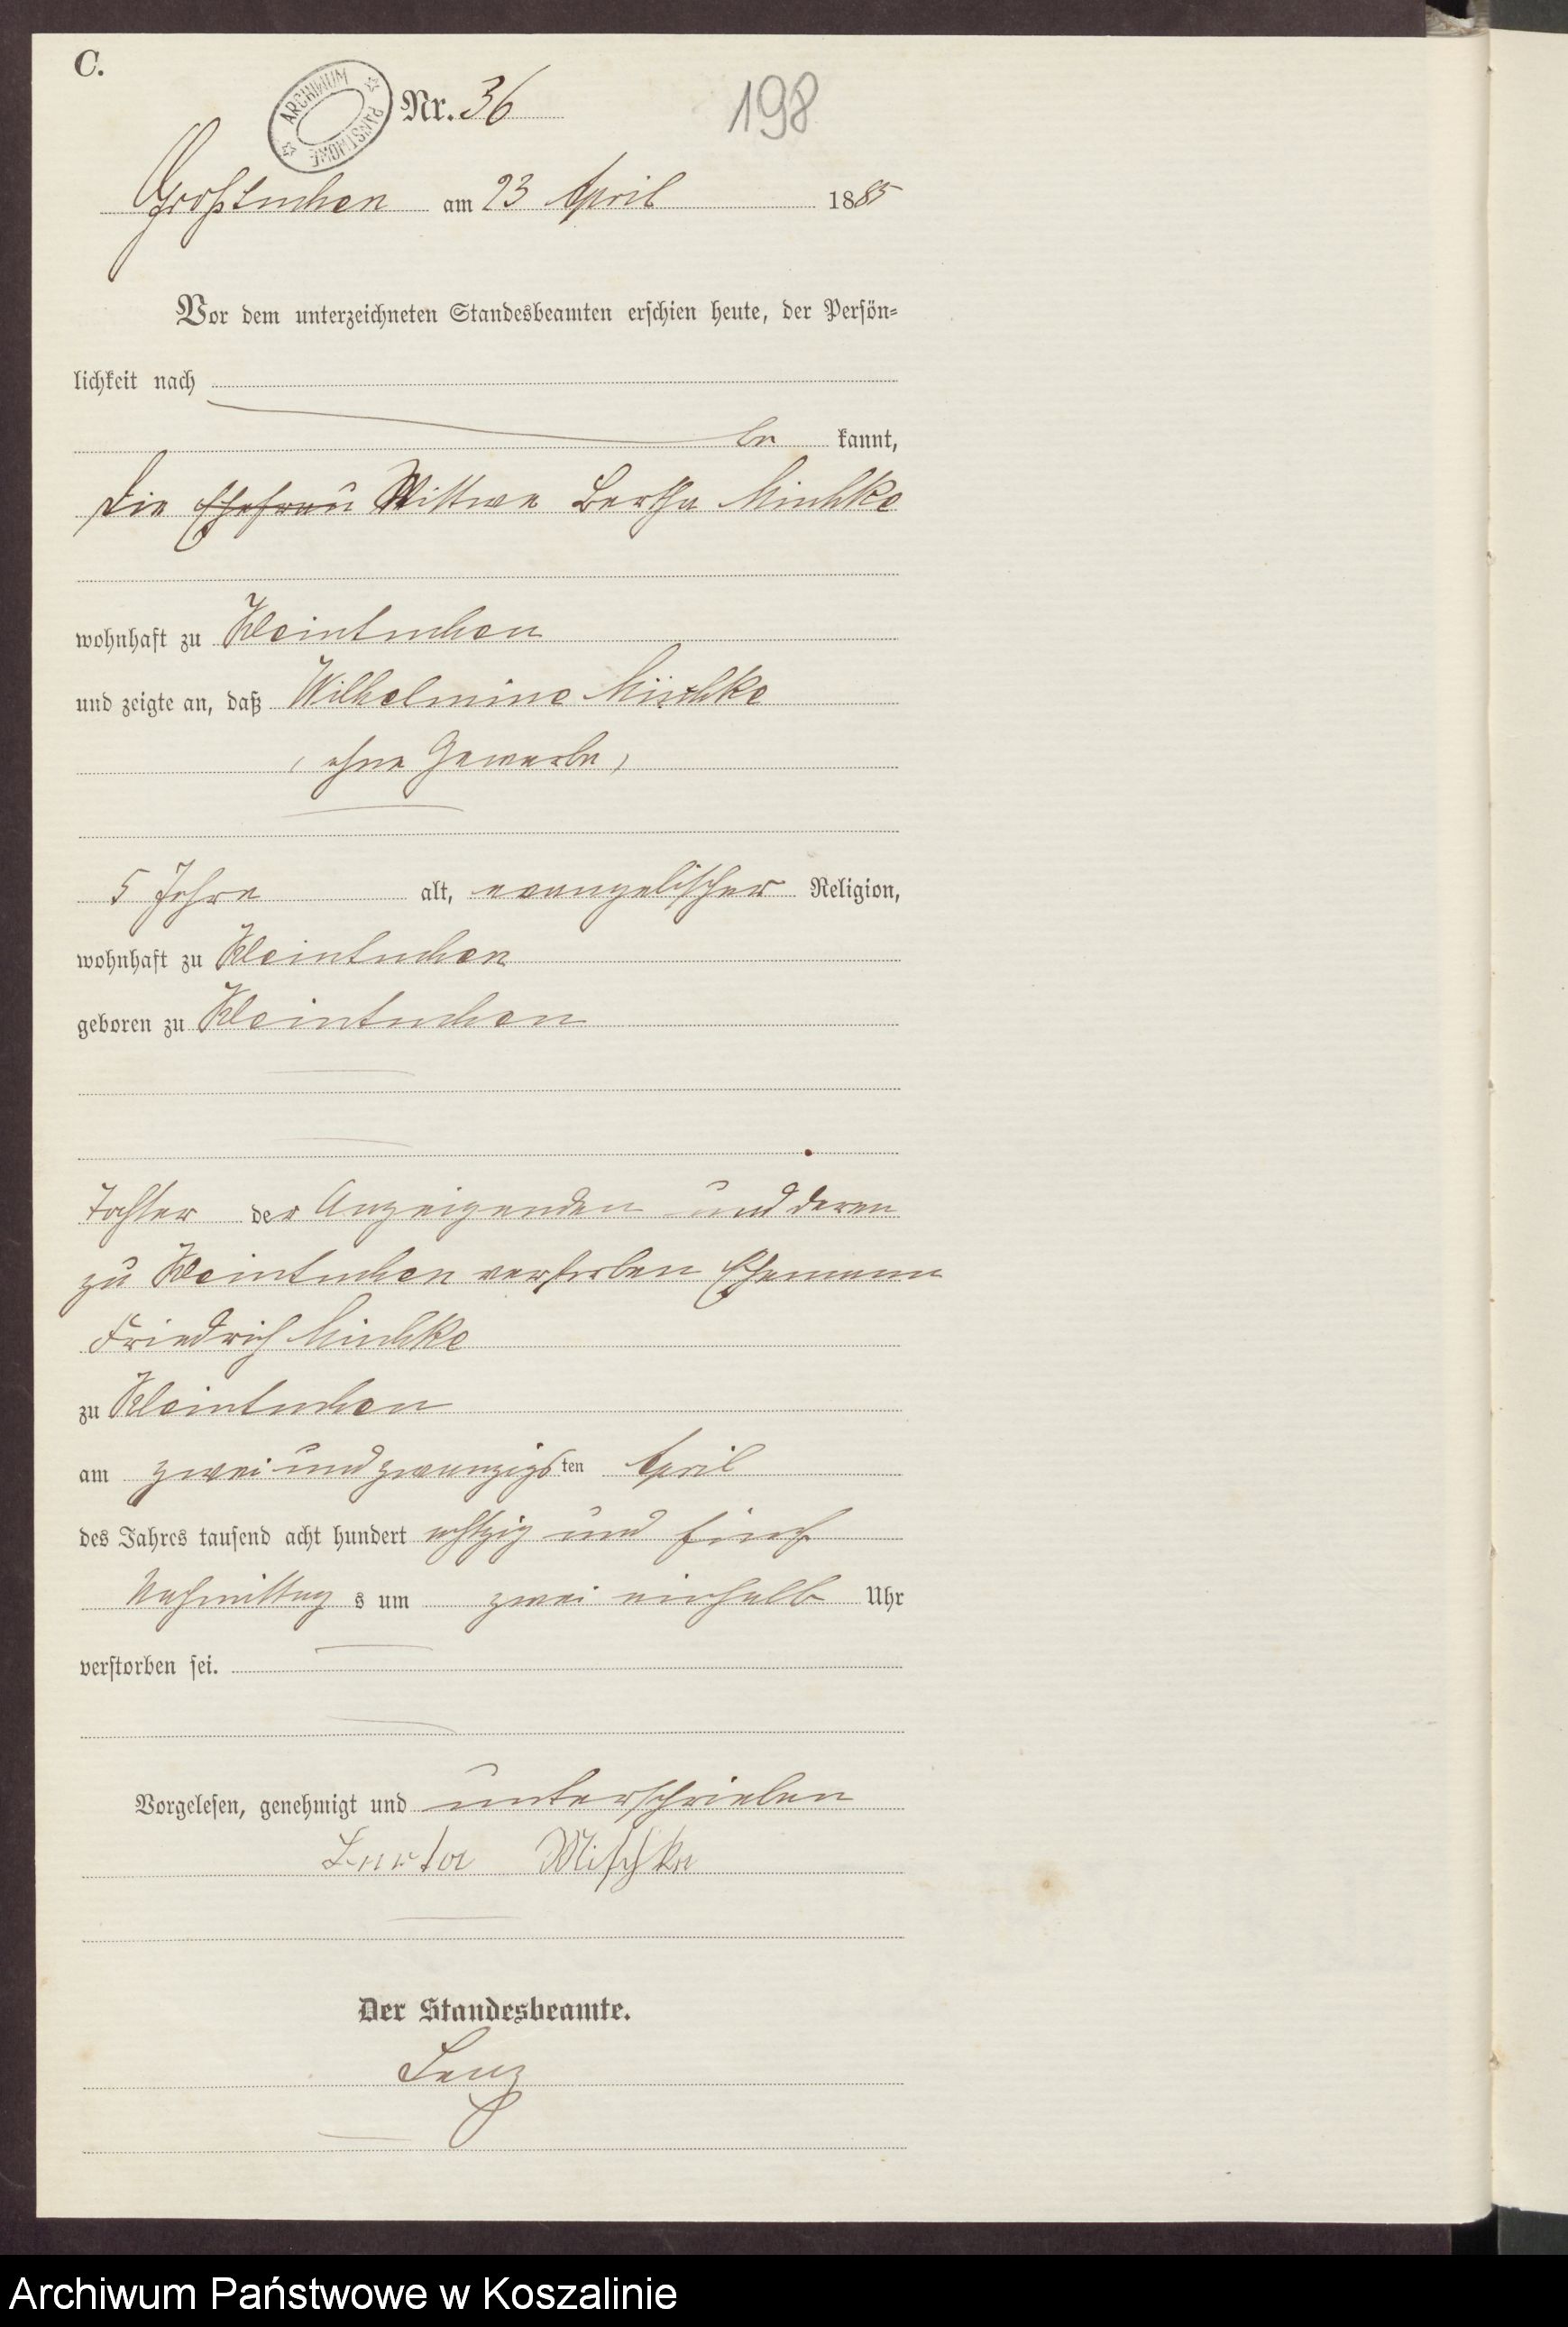 C.
ARCHIWUM PAŃSTWOWE
Nr. 36 198
Großtuchen am 23 April 1885
Vor dem unterzeichneten Standesbeamten erschien heute, der Persön-
lichkeit nach
be kannt,
die Ehefrau Wittwe Bertha Mischke
wohnhaft zu Kleintuchen
und zeigte an, daß Wilhelmine Mischke
(ohne Gewerbe)
5 Jahre alt, evangelischer Religion,
wohnhaft zu Kleintuchen
geboren zu Kleintuchen
Tochter der Anzeigenden und deren
zu Kleintuchen verstorben Ehemann
Friedrich Mischke
zu Kleintuchen
am zwei und zwanzigsten April
des Jahres tausend acht hundert achtzig und fünf
Nachmittags um zwei einhalb Uhr
verstorben sei.
Vorgelesen, genehmigt und unterschrieben
Berta Mischke
Der Standesbeamte.
Lenz
Archiwum Państwowe w Koszalinie